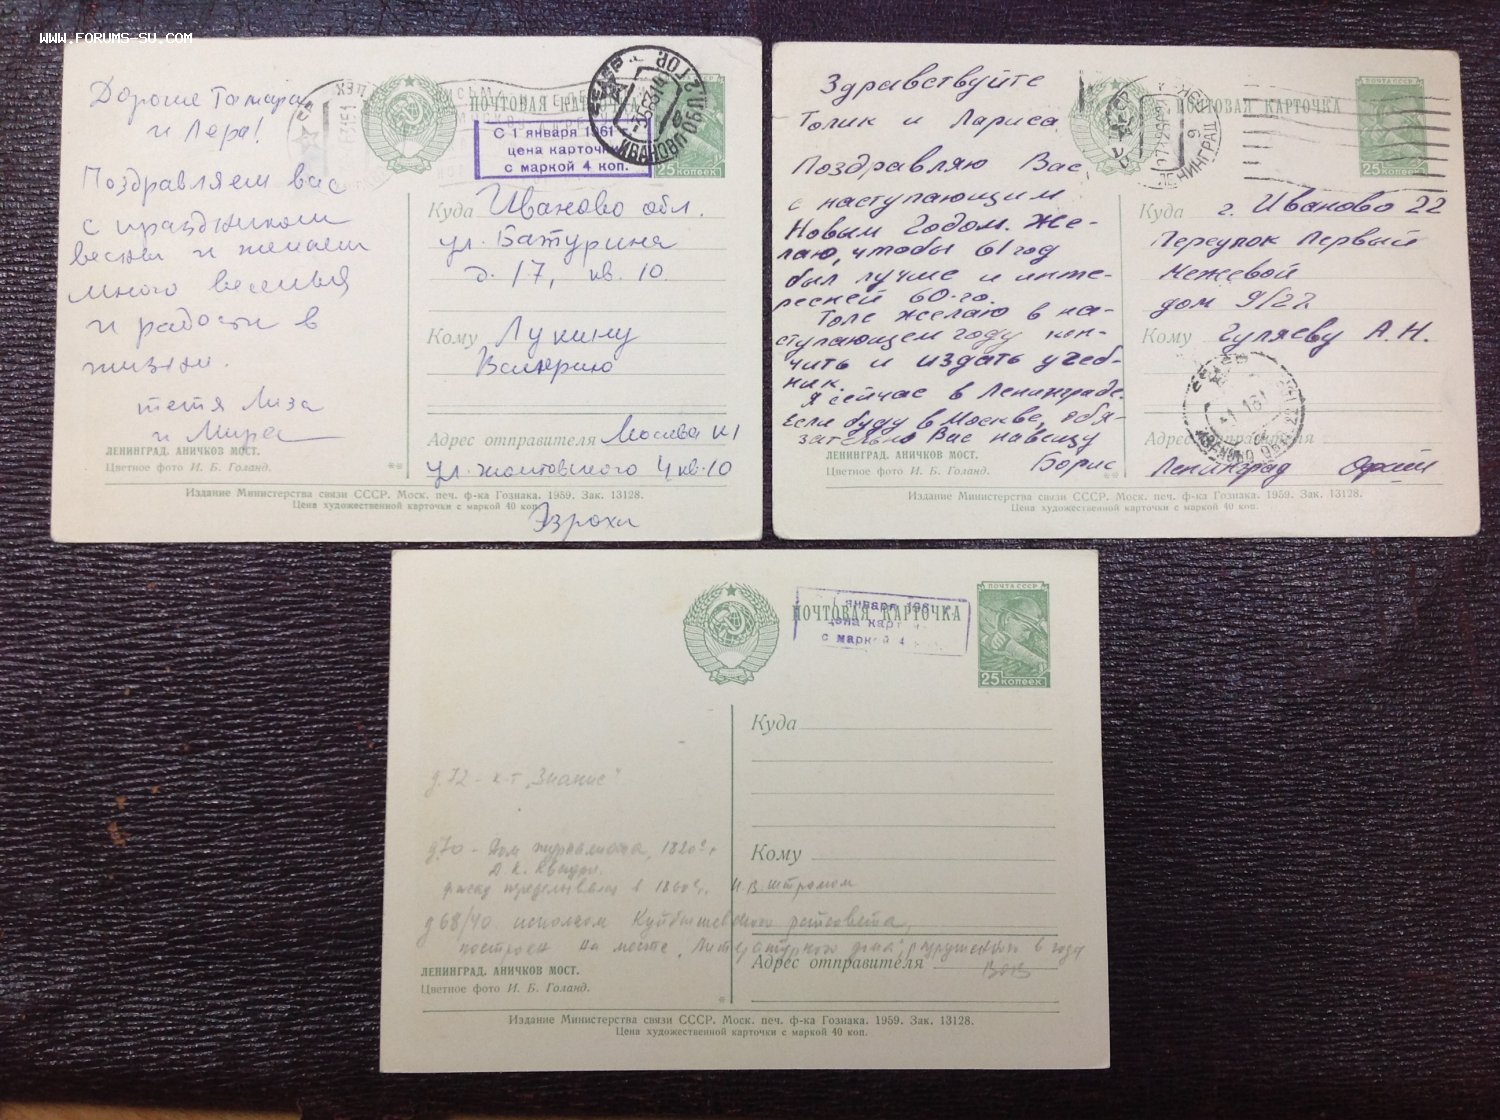 WWW.FORUMS-SU.COM
Дорогие Тамара
и Лера!
Поздравляем вас
с праздником
весны и желаем
много веселья
и радости в
жизни.
тетя Лиза
и Мира
ЛЕНИНГРАД. АНИЧКОВ МОСТ.
Цветное фото И. Б. Голанд.
ПОЧТОВАЯ КАРТОЧКА
С 1 января 1961
цена карточки
с маркой 4 коп.
ИВАНОВО ОБЛ.
25 копеек
Куда Иваново обл.
ул. Батурина
д. 17, кв. 10
Кому Лукину
Валерию
Адрес отправителя Москва
ул. Жолтовского 4 кв. 10
Издание Министерства связи СССР. Моск. печ. ф-ка Гознака. 1959. Зак. 13128.
Цена художественной карточки с маркой 40 коп.
Эзрохи
Здравствуйте
Толик и Лариса
Поздравляю Вас
с наступающим
Новым Годом. Же-
лаю, чтобы 61 год
был лучше и инте-
ресней 60-го.
Толе желаю в на-
ступающем году кон-
чить и издать учеб-
ник.
Я сейчас в Ленинграде.
Если буду в Москве, обя-
зательно Вас навещу
Борис
ЛЕНИНГРАД. АНИЧКОВ МОСТ.
Цветное фото И. Б. Голанд.
ПОЧТОВАЯ КАРТОЧКА
ПОЧТА СССР
25 копеек
ЛЕНИНГРАД
Куда г. Иваново 22
Переулок Первый
Межевой
дом 9/27
Кому Гуляеву А. Н.
Адрес отправителя
Ленинград
Издание Министерства связи СССР. Моск. печ. ф-ка Гознака. 1959. Зак. 13128.
Цена художественной карточки с маркой 40 коп.
ПОЧТОВАЯ КАРТОЧКА
января 196
цена карт
с маркой 4
ПОЧТА СССР
25 копеек
Куда
Кому
д. 72 - к-т "Знание"
д. 70 - Дом журналиста, 1820е г
Д. К.
фасад переделывал в 1860е г. Штромом
д 68/40 исполком Куйбышевского райсовета,
построен на месте "Литературного дома", разрушенного в года
ВОВ
Адрес отправителя
ЛЕНИНГРАД. АНИЧКОВ МОСТ.
Цветное фото И. Б. Голанд.
Издание Министерства связи СССР. Моск. печ. ф-ка Гознака. 1959. Зак. 13128.
Цена художественной карточки с маркой 40 коп.